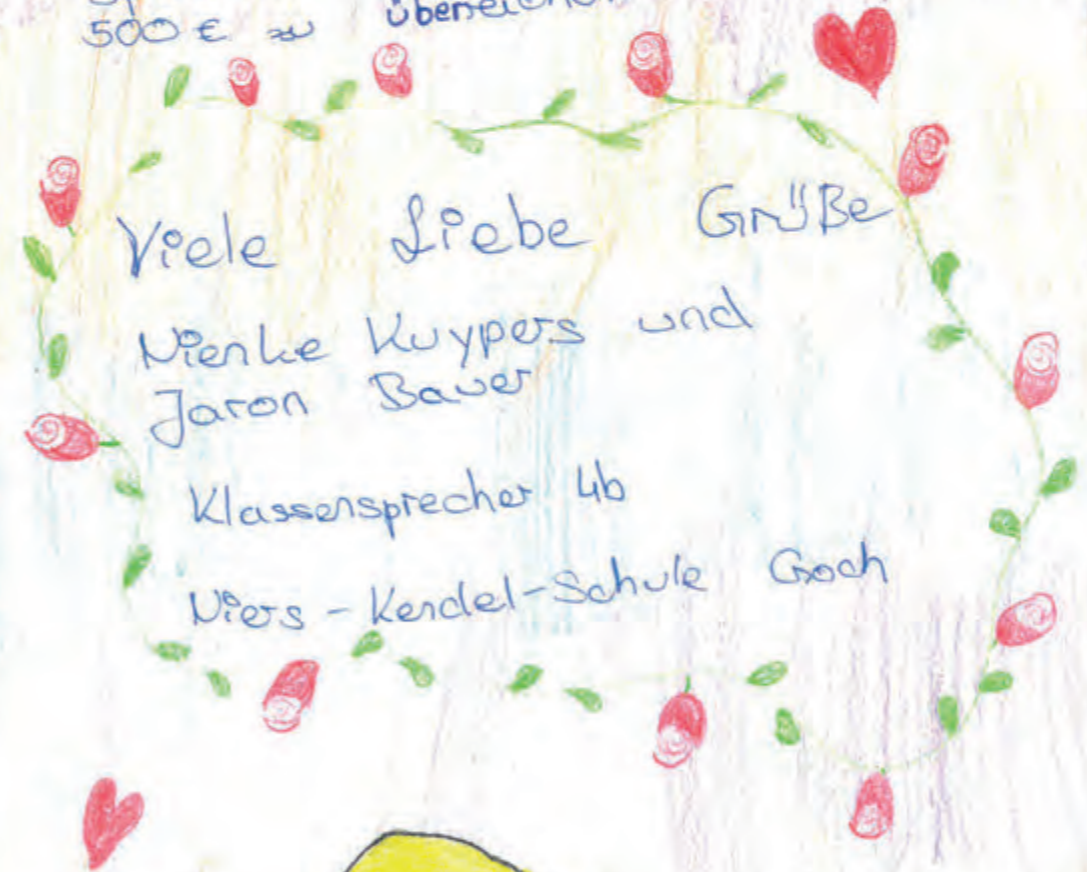 500 € zu
Viele Liebe Grüße
Nienke Kuypers und
Jaron Bauer
Klassensprecher 4b
Niers-Kendel-Schule Goch